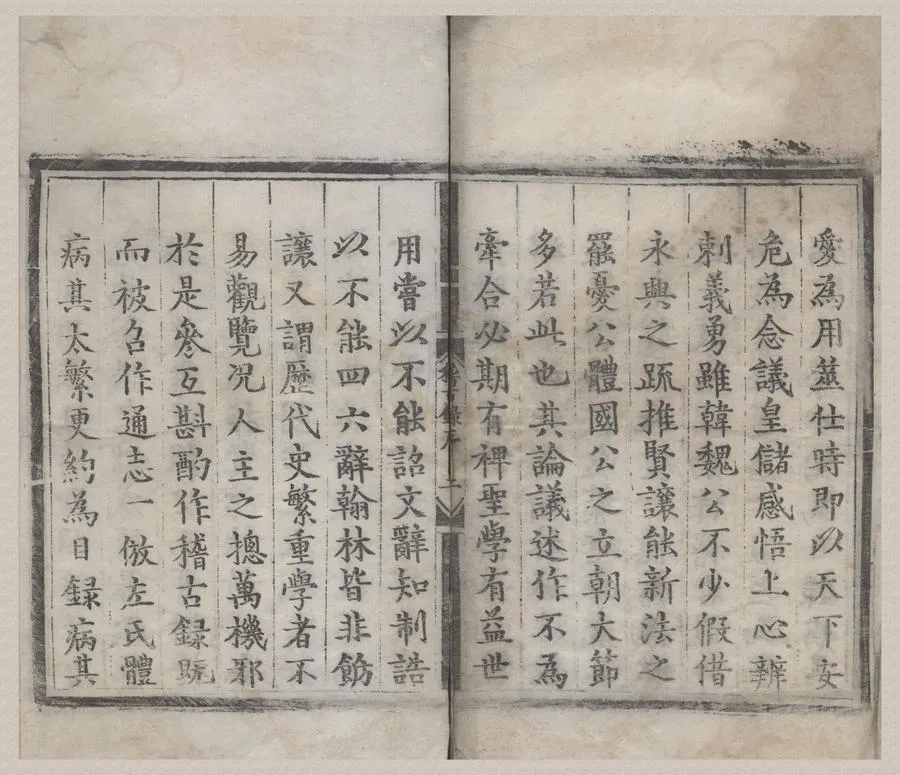 愛為用莁仕時即以天下安
危為念議皇儲感悟上心辨
刺義勇雖韓魏公不少假借
永興之䟽推賢讓能新法之
罷憂公體國公之立朝大節
多若此也其論議述作不為
牽合必期有裨聖學有益世
稽古錄序
二
用嘗以不能詔文辭知制誥
以不能四六辭翰林皆非飭
讓又謂歷代史繁重學者不
易觀覽况人主之摠萬機邪
於是叅互斟酌作稽古録既
而被召作通志一倣左氏體
病其太繁更約為目録病其